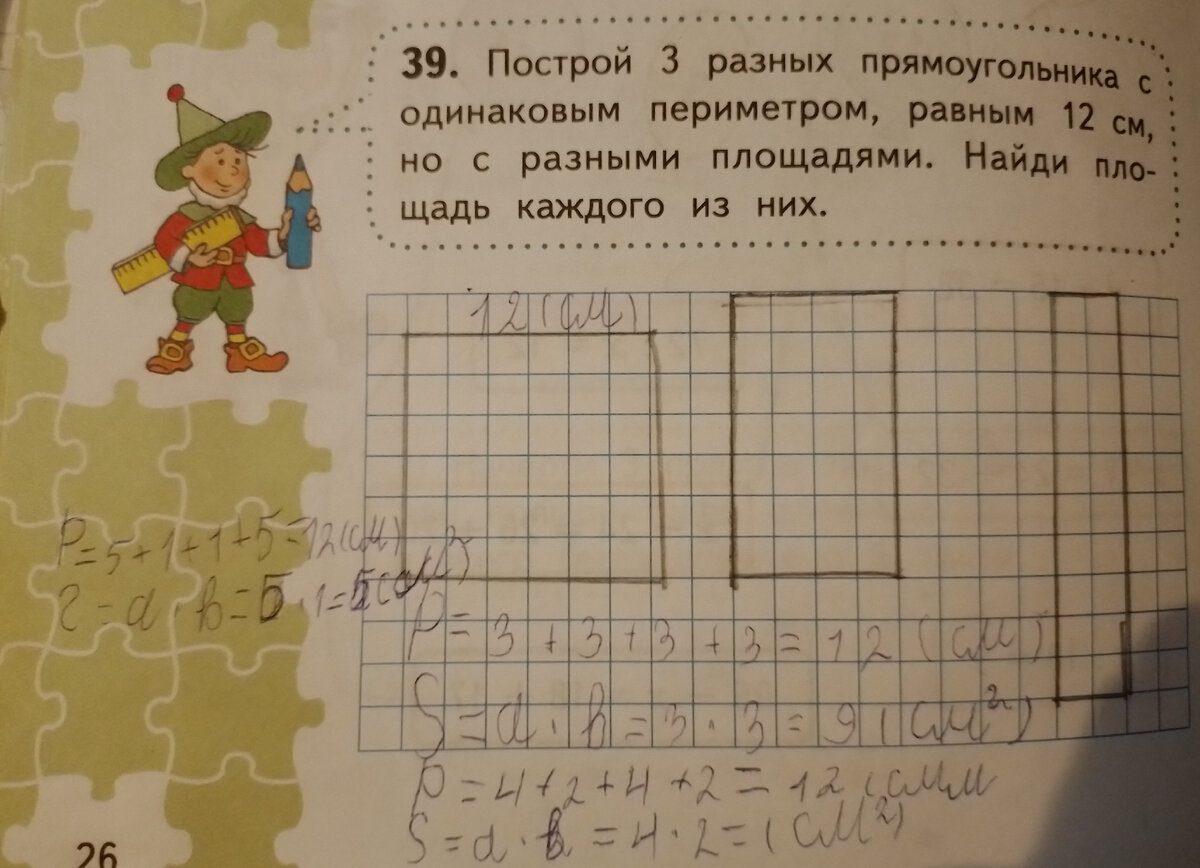 39. Построй 3 разных прямоугольника с
одинаковым периметром, равным 12 см,
но с разными площадями. Найди пло-
щадь каждого из них.
12 (см)
P=5+1+1+5=12(см)
S=a·b=5·1=5(см²)
P=3+3+3+3=12(см)
S=a·b=3·3=9(см²)
P=4+2+4+2=12(смм
S=a·b=4·2=(см²)
26